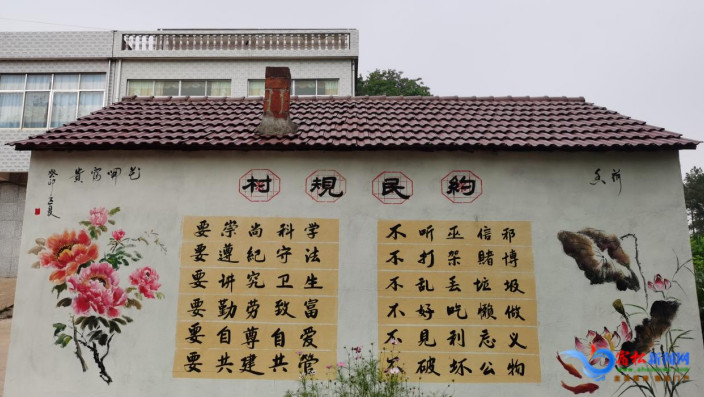 村規民約
貴富
癸卯
要崇尚科学
要遵紀守法
要讲究卫生
要勤劳致富
要自尊自爱
要共建共管
不听巫信邪
不打架賭博
不乱丢垃圾
不好吃懒做
不見利忘义
不破坏公物
新闻网